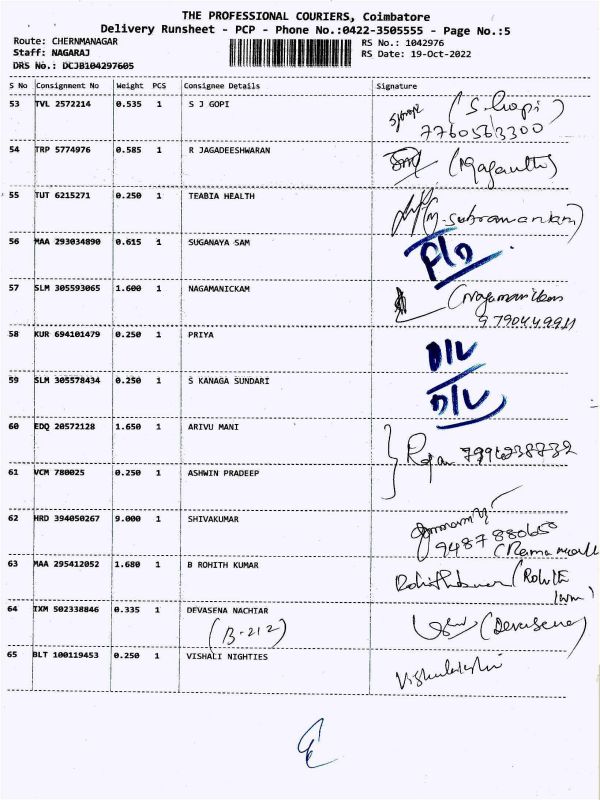 THE PROFESSIONAL COURIERS, Coimbatore
Delivery Runsheet - PCP - Phone No.:0422-3505555 - Page No.:5
Route: CHERNMANAGAR RS No.: 1042976
Staff: NAGARAJ RS Date: 19-Oct-2022
DRS No.: DCJB104297605
S No Consignment No Weight PCS Consignee Details Signature
53 TVL 2572214 0.535 1 S J GOPI (S. Gopi)
7760563300
54 TRP 5774976 0.585 1 R JAGADEESHWARAN
55 TUT 6215271 0.250 1 TEABIA HEALTH
56 MAA 293034890 0.615 1 SUGANAYA SAM
57 SLM 305593065 1.600 1 NAGAMANICKAM (Nagamanickam
9790449911
58 KUR 694101479 0.250 1 PRIYA D/L
59 SLM 305578434 0.250 1 S KANAGA SUNDARI D/L
60 EDQ 20572128 1.650 1 ARIVU MANI
61 VCM 780025 0.250 1 ASHWIN PRADEEP
62 HRD 394050267 9.000 1 SHIVAKUMAR
9487880650
63 MAA 295412052 1.680 1 B ROHITH KUMAR
64 IXM 502338846 0.335 1 DEVASENA NACHIAR (Devasena)
(B-212)
65 BLT 100119453 0.250 1 VISHALI NIGHTIES